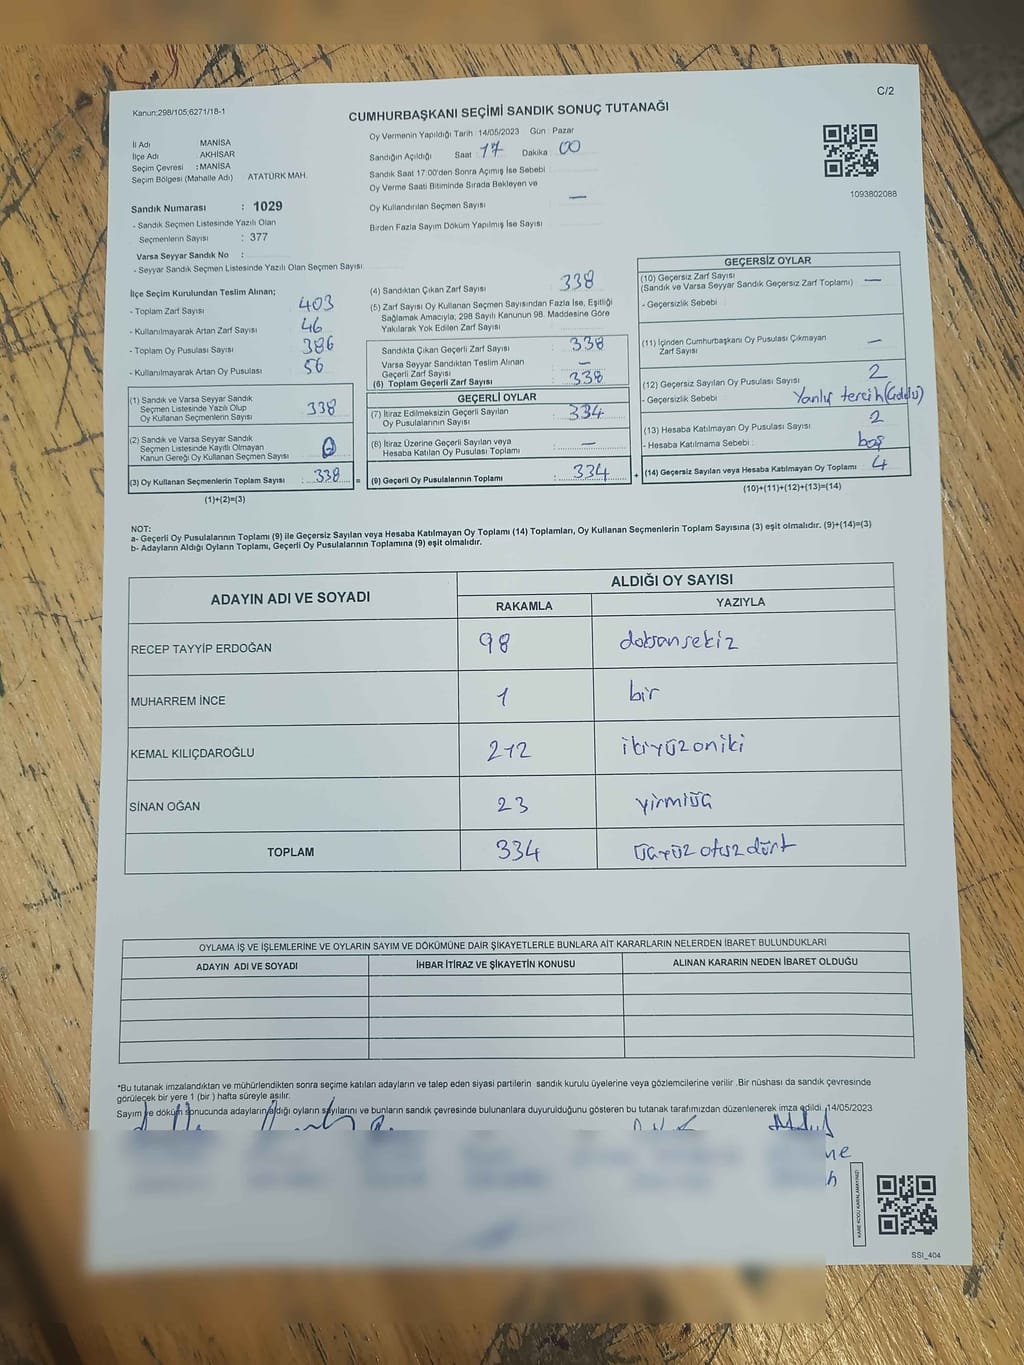 Kanun:298/105;6271/18-1
C/2
CUMHURBAŞKANI SEÇİMİ SANDIK SONUÇ TUTANAĞI
İl Adı MANİSA
İlçe Adı AKHİSAR
Seçim Çevresi : MANİSA
Seçim Bölgesi (Mahalle Adı) ATATÜRK MAH.
Sandık Numarası : 1029
- Sandık Seçmen Listesinde Yazılı Olan
Seçmenlerin Sayısı : 377
Varsa Seyyar Sandık No :
- Seyyar Sandık Seçmen Listesinde Yazılı Olan Seçmen Sayısı:
Oy Vermenin Yapıldığı Tarih 14/05/2023 Gün Pazar
Sandığın Açıldığı Saat 17 Dakika 00
Sandık Saat 17:00'den Sonra Açımış İse Sebebi :
Oy Verme Saati Bitiminde Sırada Bekleyen ve
Oy Kullandırılan Seçmen Sayısı : —
Birden Fazla Sayım Döküm Yapılmış İse Sayısı :
1093802088
İlçe Seçim Kurulundan Teslim Alınan;
- Toplam Zarf Sayısı : 403
- Kullanılmayarak Artan Zarf Sayısı : 46
- Toplam Oy Pusulası Sayısı : 386
- Kullanılmayarak Artan Oy Pusulası : 56
(1) Sandık ve Varsa Seyyar Sandık
Seçmen Listesinde Yazılı Olup
Oy Kullanan Seçmenlerin Sayısı : 338
(2) Sandık ve Varsa Seyyar Sandık
Seçmen Listesinde Kayıtlı Olmayan
Kanun Gereği Oy Kullanan Seçmen Sayısı : 0
(3) Oy Kullanan Seçmenlerin Toplam Sayısı : 338 =
(1)+(2)=(3)
(4) Sandıktan Çıkan Zarf Sayısı : 338
(5) Zarf Sayısı Oy Kullanan Seçmen Sayısından Fazla İse, Eşitliği
Sağlamak Amacıyla; 298 Sayılı Kanunun 98. Maddesine Göre
Yakılarak Yok Edilen Zarf Sayısı :
Sandıkta Çıkan Geçerli Zarf Sayısı : 338
Varsa Seyyar Sandıktan Teslim Alınan
Geçerli Zarf Sayısı : —
(6) Toplam Geçerli Zarf Sayısı : 338
GEÇERLİ OYLAR
(7) İtiraz Edilmeksizin Geçerli Sayılan
Oy Pusulalarının Sayısı : 334
(8) İtiraz Üzerine Geçerli Sayılan veya
Hesaba Katılan Oy Pusulası Toplamı : —
(9) Geçerli Oy Pusulalarının Toplamı : 334 +
GEÇERSİZ OYLAR
(10) Geçersiz Zarf Sayısı
(Sandık ve Varsa Seyyar Sandık Geçersiz Zarf Toplamı) : —
- Geçersizlik Sebebi :
(11) İçinden Cumhurbaşkanı Oy Pusulası Çıkmayan
Zarf Sayısı : —
(12) Geçersiz Sayılan Oy Pusulası Sayısı : 2
- Geçersizlik Sebebi : Yanlış tercih
(13) Hesaba Katılmayan Oy Pusulası Sayısı : 2
- Hesaba Katılmama Sebebi : boş
(14) Geçersiz Sayılan veya Hesaba Katılmayan Oy Toplamı : 4
(10)+(11)+(12)+(13)=(14)
NOT:
a- Geçerli Oy Pusulalarının Toplamı (9) ile Geçersiz Sayılan veya Hesaba Katılmayan Oy Toplamı (14) Toplamları, Oy Kullanan Seçmenlerin Toplam Sayısına (3) eşit olmalıdır. (9)+(14)=(3)
b- Adayların Aldığı Oyların Toplamı, Geçerli Oy Pusulalarının Toplamına (9) eşit olmalıdır.
ADAYIN ADI VE SOYADI ALDIĞI OY SAYISI
RAKAMLA YAZIYLA
RECEP TAYYİP ERDOĞAN 98 doksansekiz
MUHARREM İNCE 1 bir
KEMAL KILIÇDAROĞLU 212 ikiyüzoniki
SİNAN OĞAN 23 yirmiüç
TOPLAM 334 üçyüz otuz dört
OYLAMA İŞ VE İŞLEMLERİNE VE OYLARIN SAYIM VE DÖKÜMÜNE DAİR ŞİKAYETLERLE BUNLARA AİT KARARLARIN NELERDEN İBARET BULUNDUKLARI
ADAYIN ADI VE SOYADI İHBAR İTİRAZ VE ŞİKAYETİN KONUSU ALINAN KARARIN NEDEN İBARET OLDUĞU
*Bu tutanak imzalandıktan ve mühürlendikten sonra seçime katılan adayların ve talep eden siyasi partilerin sandık kurulu üyelerine veya gözlemcilerine verilir .Bir nüshası da sandık çevresinde
görülecek bir yere 1 (bir ) hafta süreyle asılır.
Sayım ve döküm sonucunda adayların aldığı oyların sayılarını ve bunların sandık çevresinde bulunanlara duyurulduğunu gösteren bu tutanak tarafımızdan düzenlenerek imza edildi. 14/05/2023
KARE KODU KARALAMAYINIZ!
SSI_404